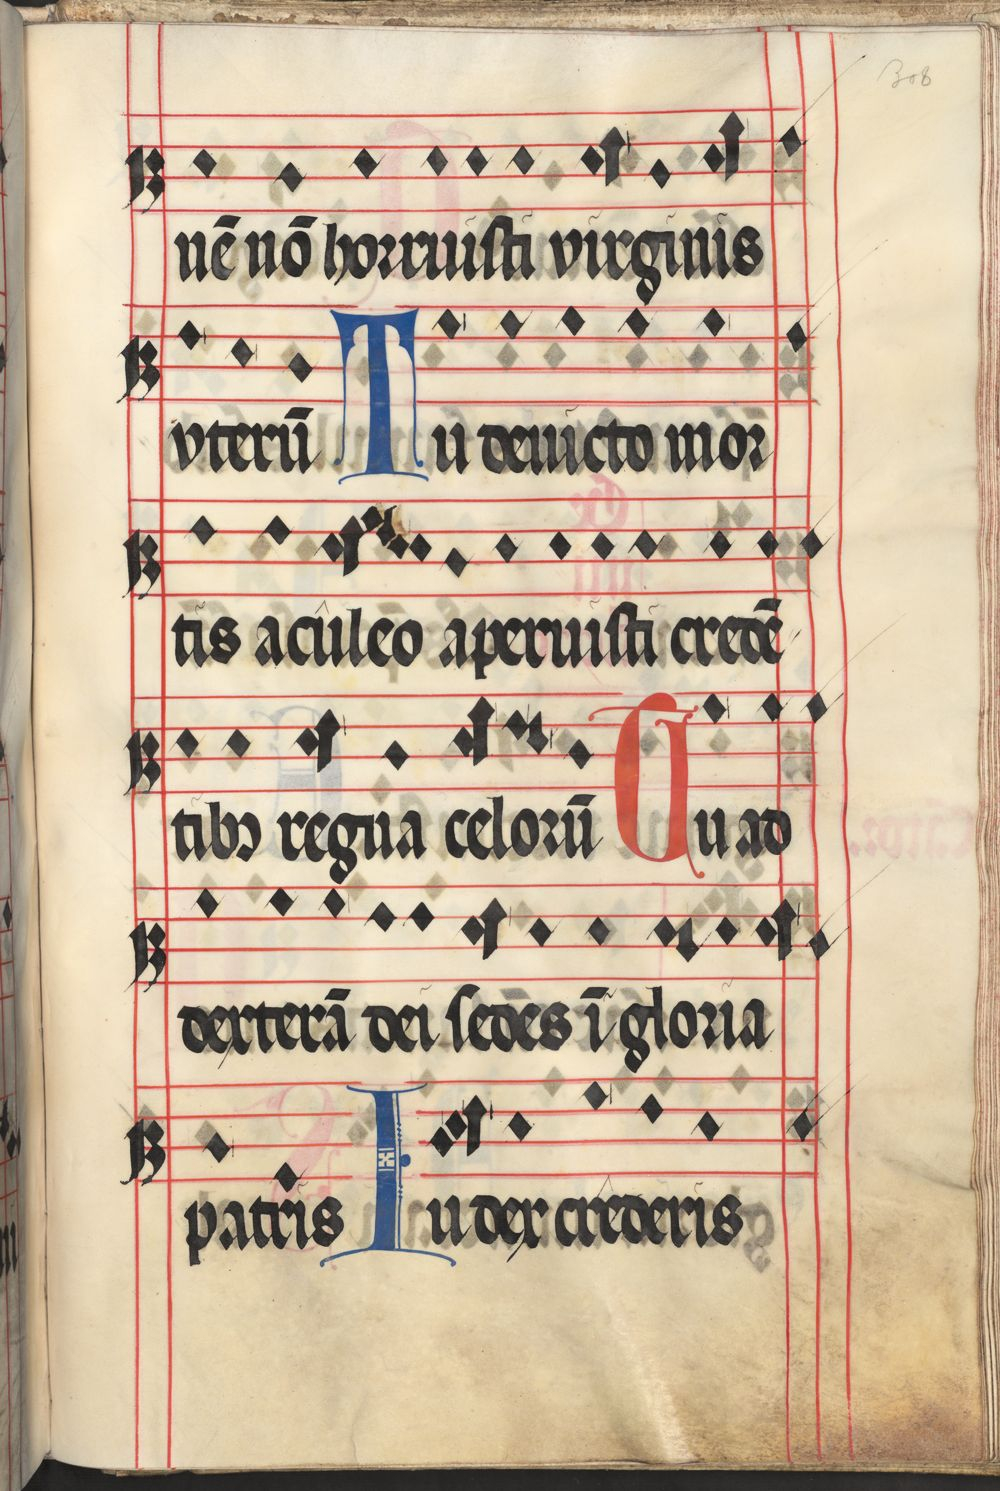 308
nē nō horruisti virginis
vterū Tu deuicto mor
tis aculeo aperuisti credē
tibꝫ regna celorū Tu ad
dexterā dei sedēs ī gloria
patris Iudex crederis